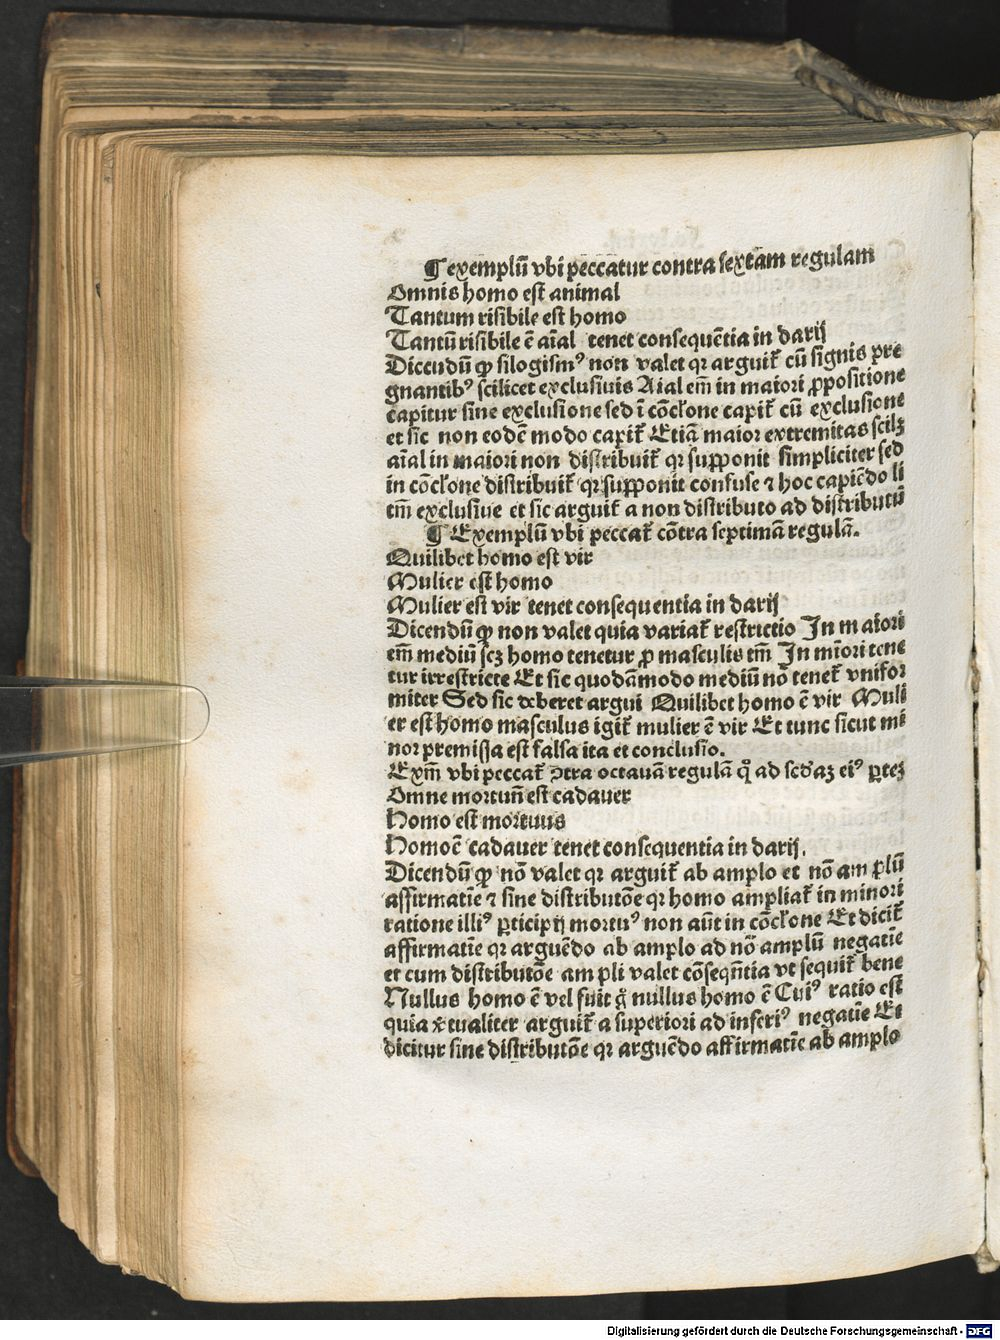 ¶ exemplū vbi peccatur contra sextam regulam
Omnis homo est animal
Tantum risibile est homo
Tantū risibile ē aīal tenet consequētia in darij
Dicendū ꝙ silogismꝰ non valet qꝛ arguit̄ cū signis pre
gnantibꝰ scilicet exclusiuis Aīal em̄ in maiori ꝓpositione
capitur sine exclusione sed ī cōcl'one capit̄ cū exclusione
et sic non eodē modo capit̄ Etiā maior extremitas scilꝫ
aīal in maiori non distribuit̄ qꝛ supponit simpliciter sed
in cōcl'one distribuit̄ qꝛ supponit confuse ⁊ hoc capiēdo li
tm̄ exclusiue et sic arguit̄ a non distributo ad distributū
¶ Exemplū vbi peccat̄ cōtra septimā regulā.
Quilibet homo est vir
Mulier est homo
Mulier est vir tenet consequentia in darij
Dicendū ꝙ non valet quia variat̄ restrictio In maiori
em̄ mediū scꝫ homo tenetur ꝓ masculis tm̄ In mīori tene
tur irrestricte Et sic quodāmodo mediū nō tenet̄ vnifor
miter Sed sic deberet argui Quilibet homo ē vir Muli
er est homo masculus igit̄ mulier ē vir Et tunc sicut mi
nor premissa est falsa ita et conclusio.
Exm̄ vbi peccat̄ ↄtra octauā regulā qͦ ad scd'aꝫ eiꝰ ꝑteꝫ
Omne mortuū est cadauer
Homo est mortuus
Homo ē cadauer tenet consequentia in darij.
Dicendū ꝙ nō valet qꝛ arguit̄ ab amplo et nō am plū
affirmatīe ⁊ sine distributōe qꝛ homo ampliat̄ in minori
ratione illiꝰ ꝑticipij mortuꝰ non aūt in cōcl'one Et dicit̄
affirmatīe qꝛ arguēdo ab amplo ad nō amplū negatīe
et cum distributōe am pli valet cōseqn̄tia vt sequit̄ bene
Nullus homo ē vel fuit gͦ nullus homo ē Cuiꝰ ratio est
quia v̄tualiter arguit̄ a superiori ad inferiꝰ negatīe Et
dicitur sine distributōe qꝛ arguēdo affirmatīe ab amplo
Digitalisierung gefördert durch die Deutsche Forschungsgemeinschaft - DFG